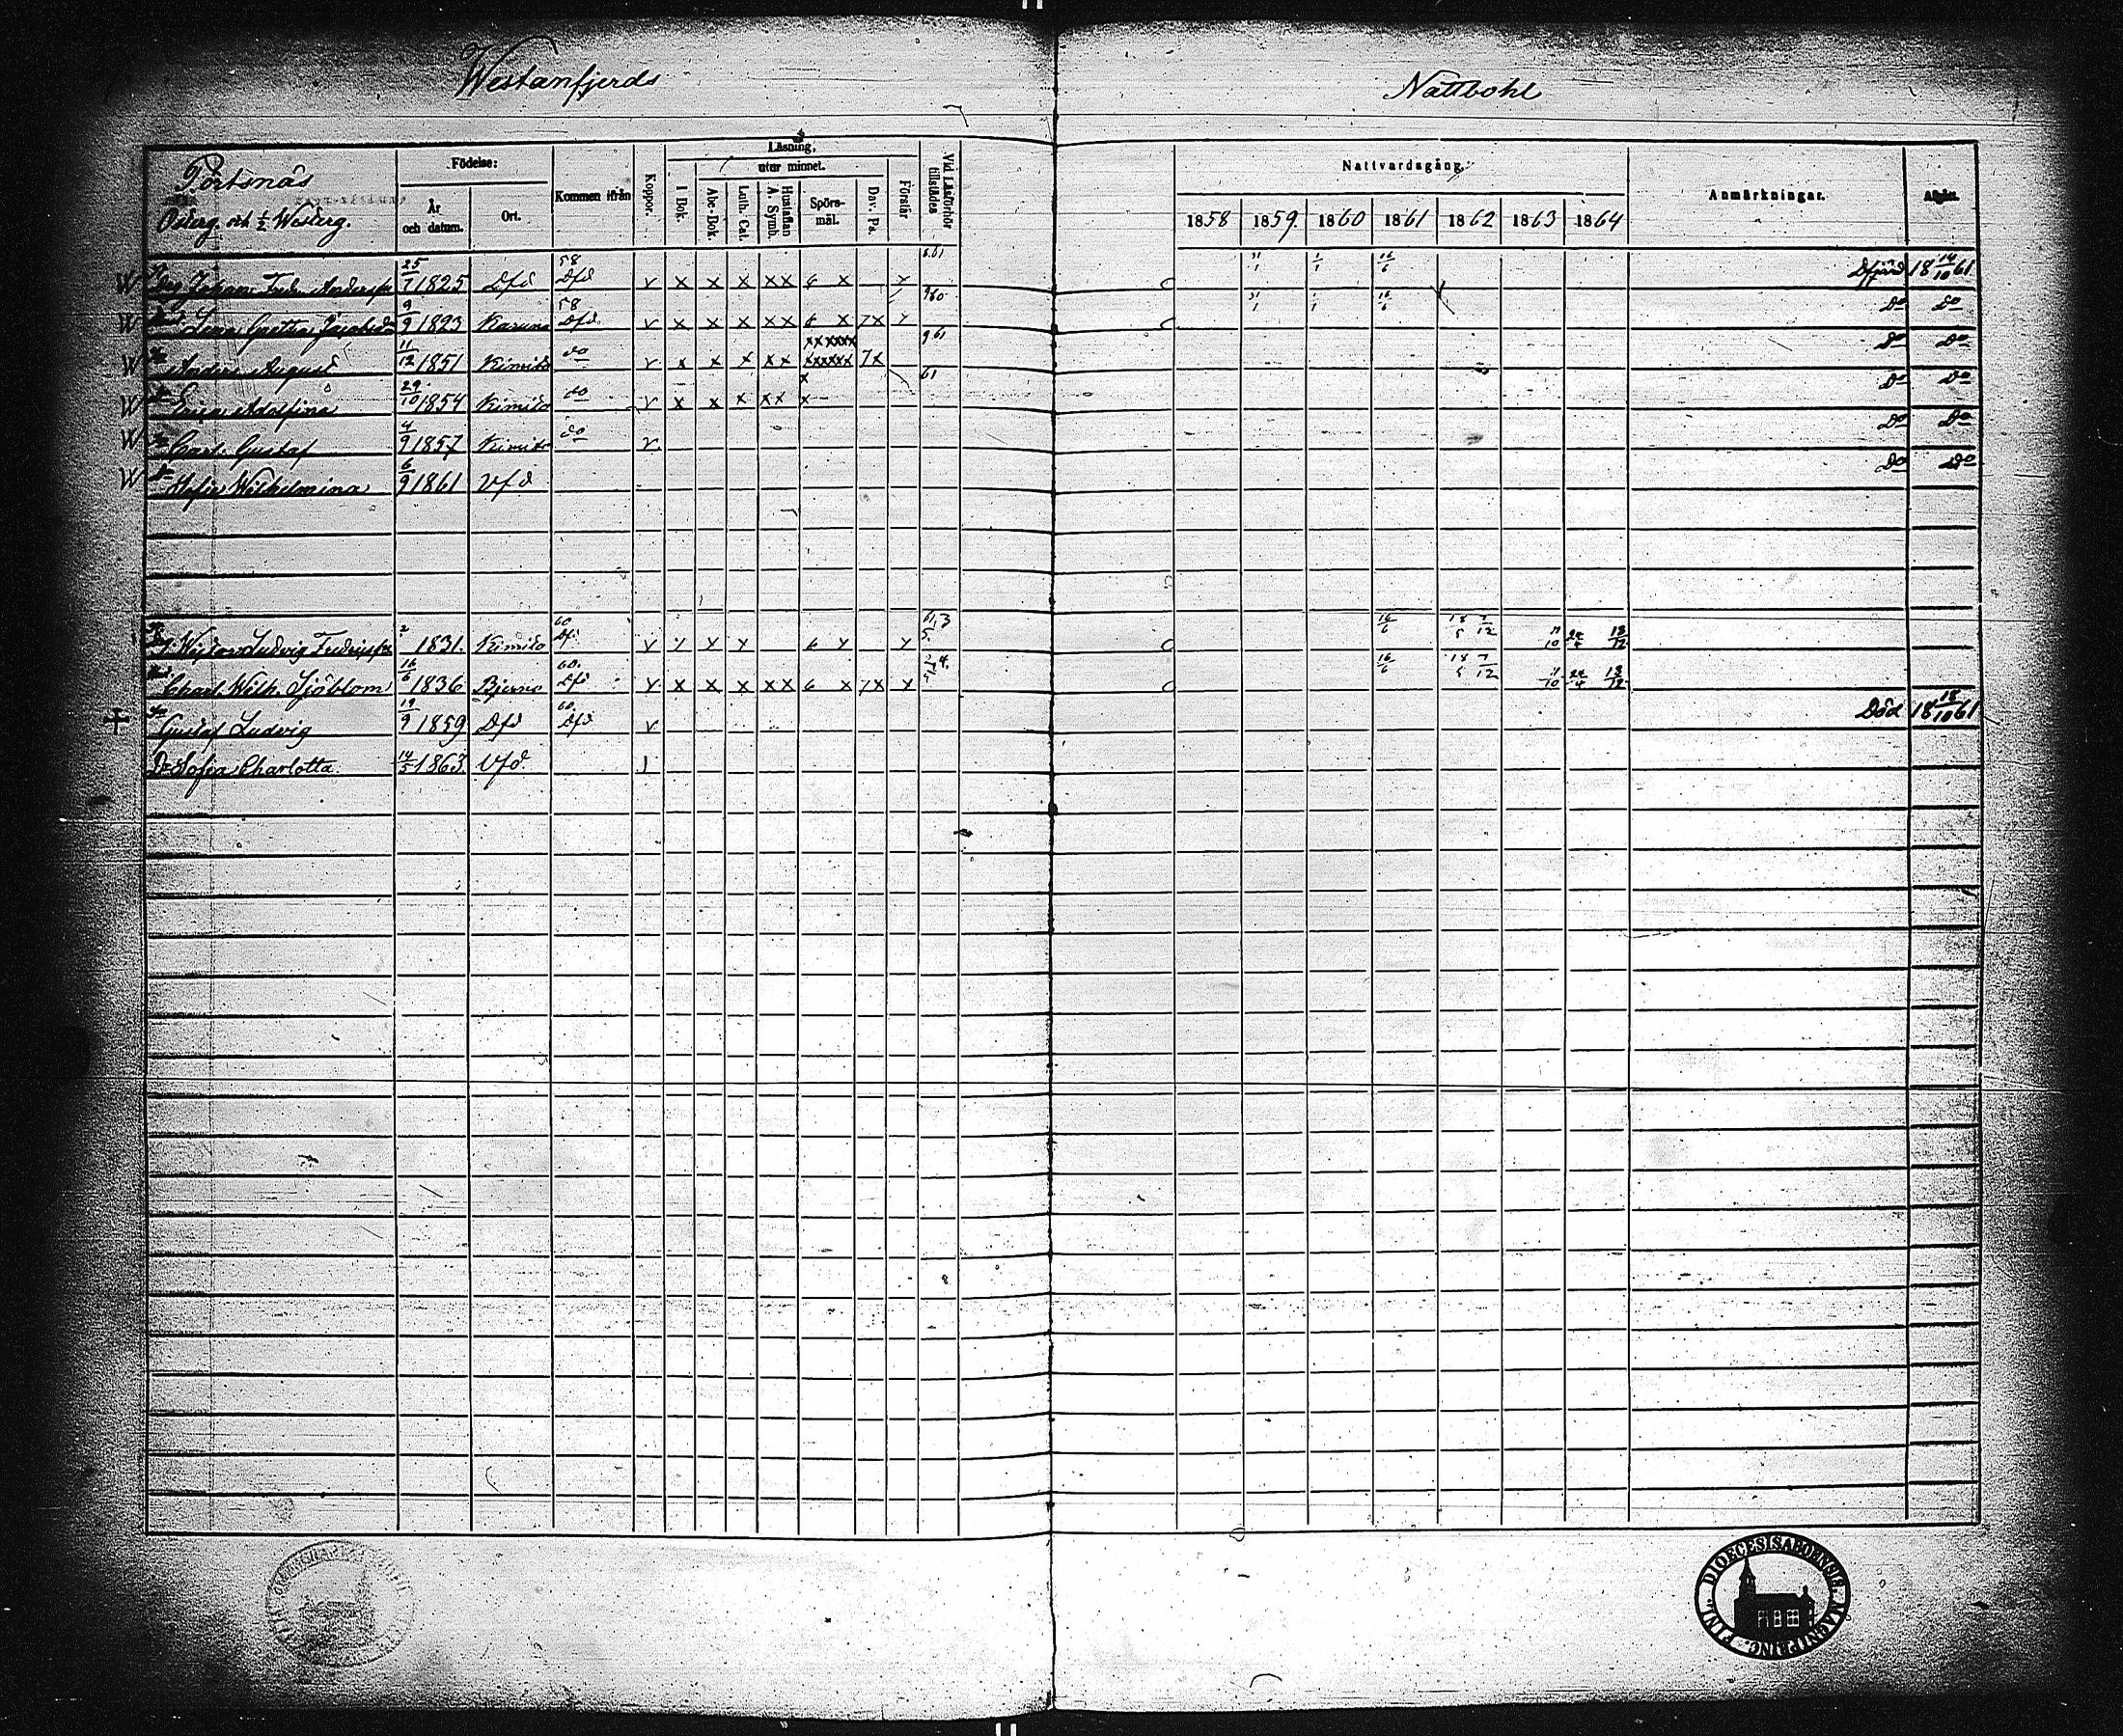 Westanfjerds
Nattbohl
Pörtsnäs
Österg. och ½ Westerg.
Födelse:
År och datum.
Ort.
Kommen ifrån
Koppor.
Läsning,
utur minnet.
I Bok.
Abc-Bok.
Luth. Cat.
Hustaflan A. Symb.
Spörs-mål.
Dav. Ps.
Förstår
Vid Läsförhör tillstädes
Nattvardsgång.
1858 1859. 1860 1861 1862 1863 1864
Anmärkningar.
Afgått.
W Johan Fredr. Andersson 25/7 1825 Dfd 58 Dfd v x x x x x 6 x x 1/1 16/6 Dfjerd 18 14/10 61
W Lena Greta Jacobsdr 9/9 1823 Karuna 58 Dfd. v x x x x x 6 x 7 x 1/1 16/6 Do Do
W Anders August 11/12 1851 Kimito do v x x x x x 7 x 61 Do Do
W Adolfina 29/10 1854 Kimito do v x x x x x x 61 Do Do
W So Carl Gustaf 4/9 1857 Kimito do v Do Do
W Dr Sofia Wilhelmina 6/9 1861 Vfd Do Do
Ludvig Fredriksson 1831. Kimito 60 Dfd 6 16/6 7/12 24/4 13/12
Charl. Wilh. Sjöblom 16/6 1836 Bjerno 60. Dfd v x x x x x 6 x 7 x x 16/6 7/12 24/4 13/12
So Gustaf Ludvig 19/9 1859 Dfd 60. Dfd v Död 18 18/10 61
Dr Sofia Charlotta. 14/5 1863. Vfd.
DIOECESIS ABOENSIS MAGNI PRINC. FINL.